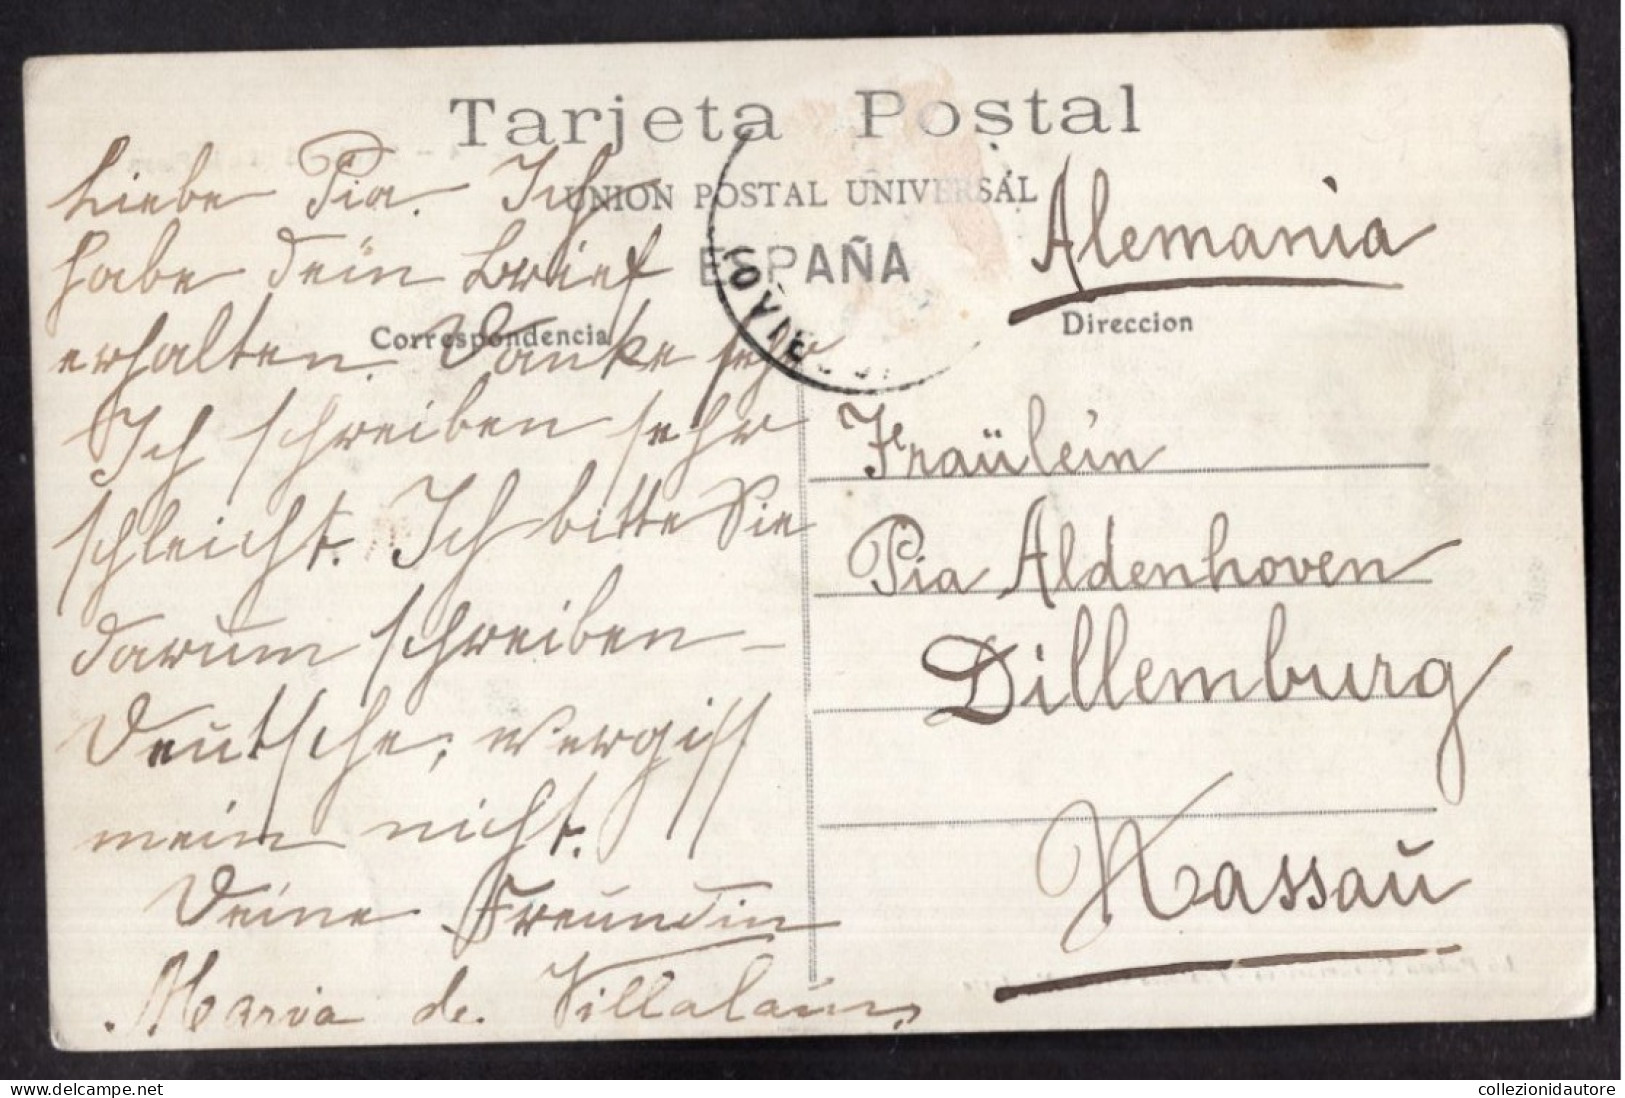 Tarjeta Postal
UNION POSTAL UNIVERSAL
ESPAÑA
Correspondencia
Direccion
Liebe Pia. Ich
habe dein Brief
erhalten. Danke sehr
Ich schreiben sehr
schleicht. Ich bitte Sie
darum schreiben –
Deutsche, vergiss
mein nicht.
Deine Freundin
Maria de
Alemania
Fraülein
Pia Aldenhoven
Dillemburg
Nassaŭ
www.delcampe.net
collezionidautore